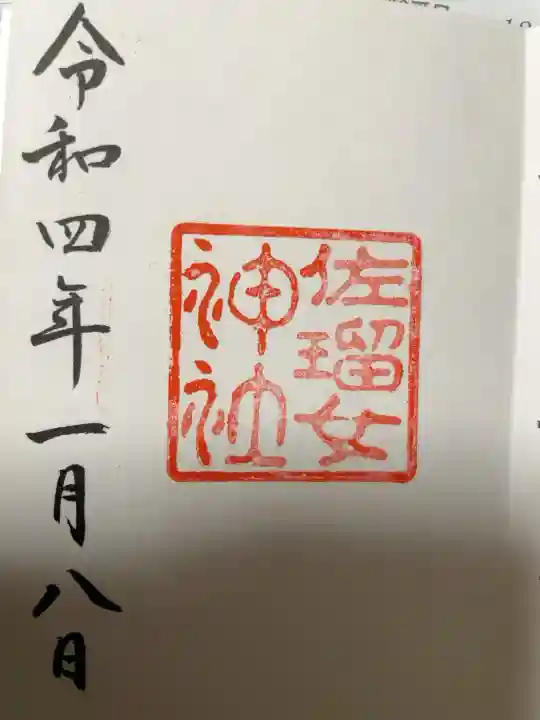 佐瑠女
神社
令和四年一月八日